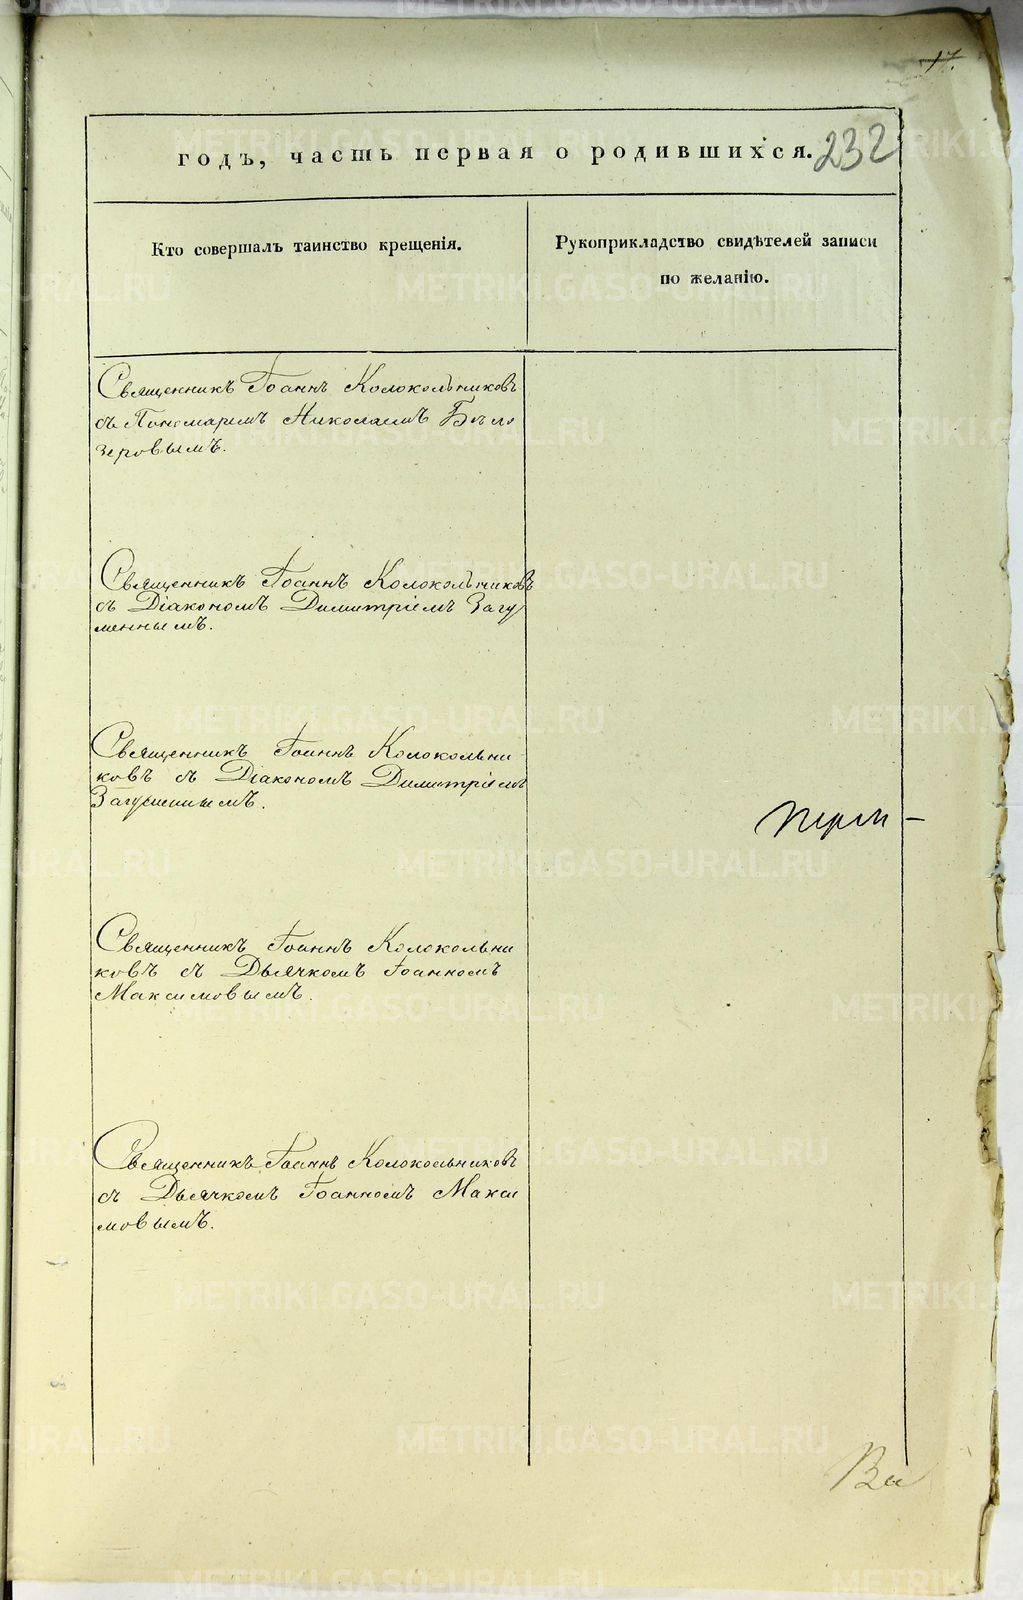 17.
годъ, часть первая о родившихся. 232
Кто совершалъ таинство крещенія.
Рукоприкладство свидѣтелей записи
по желанію.
Священникъ Іоаннъ Колокольниковъ
съ Пономаремъ Николаемъ Бѣло
зеровымъ.
Священникъ Іоаннъ Колокольниковъ
съ Діакономъ Димитріемъ Загу
меннымъ.
Священникъ Іоаннъ Колокольни
ковъ съ Діакономъ Димитріемъ
Загуменнымъ.
Священникъ Іоаннъ Колокольни
ковъ съ Дьячкомъ Іоанномъ
Максимовымъ.
Священникъ Іоаннъ Колокольниковъ
съ Дьячкомъ Іоанномъ Макси
мовымъ.
METRIKI.GASO-URAL.RU